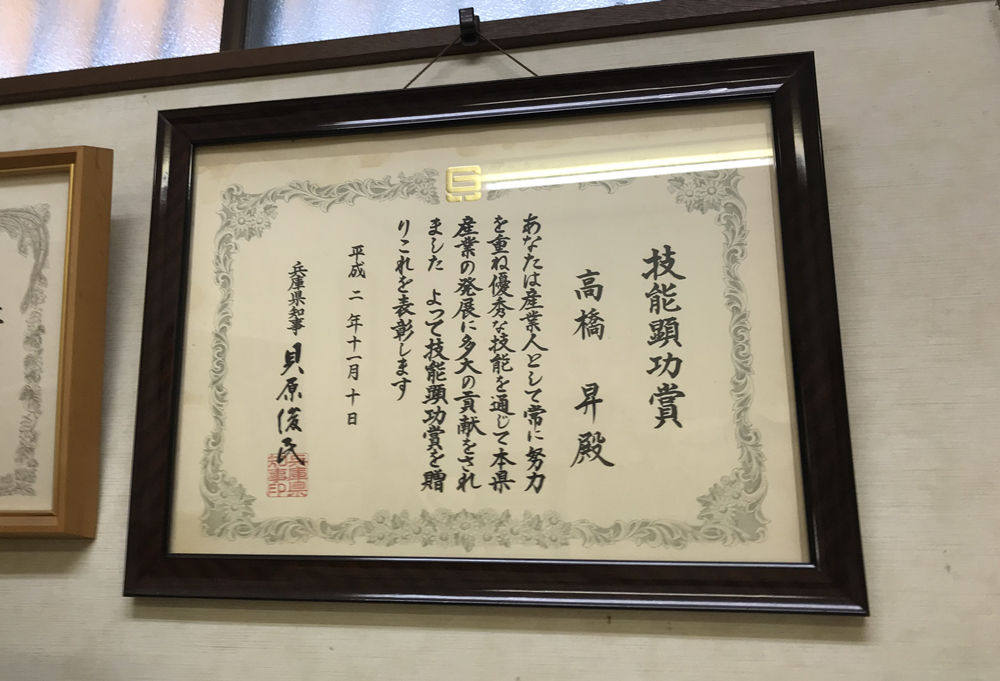 技能顕功賞
高橋 昇殿
あなたは産業人として常に努力
を重ね優秀な技能を通じて本県
産業の発展に多大の貢献をされ
ました よって技能顕功賞を贈
りこれを表彰します
平成二年十一月十日
兵庫県知事 貝原俊民
兵庫県
知事印